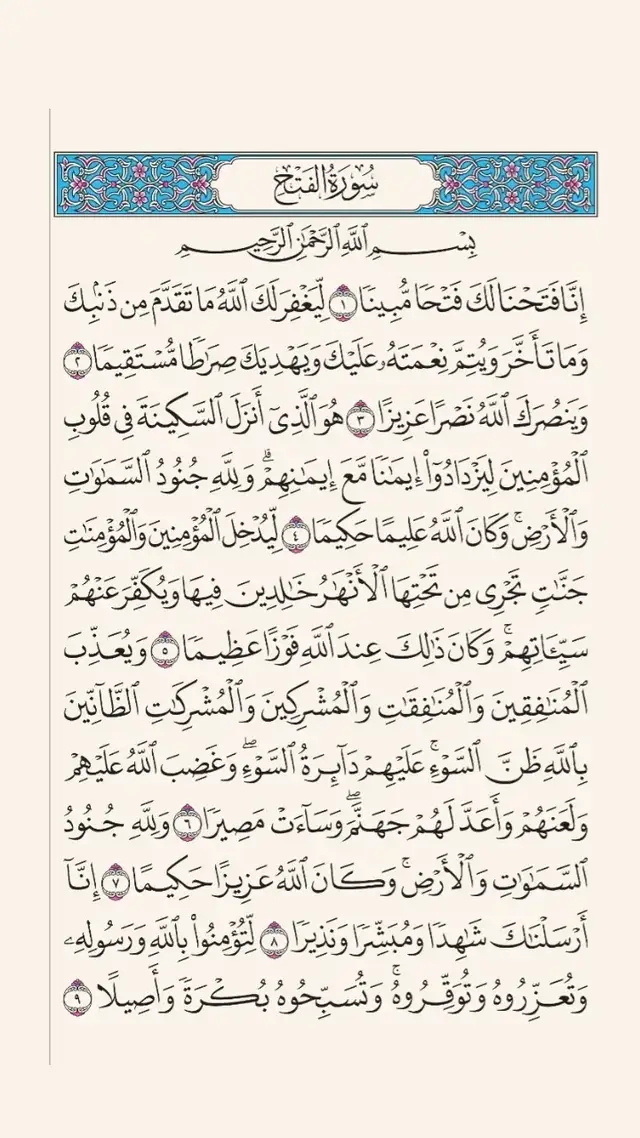 سُورَةُ الفَتْحِ
بِسْمِ اللَّهِ الرَّحْمَٰنِ الرَّحِيمِ
إِنَّا فَتَحْنَا لَكَ فَتْحًا مُّبِينًا ١ لِّيَغْفِرَ لَكَ اللَّهُ مَا تَقَدَّمَ مِن ذَنۢبِكَ
وَمَا تَأَخَّرَ وَيُتِمَّ نِعْمَتَهُۥ عَلَيْكَ وَيَهْدِيَكَ صِرَٰطًا مُّسْتَقِيمًا ٢
وَيَنصُرَكَ ٱللَّهُ نَصْرًا عَزِيزًا ٣ هُوَ ٱلَّذِىٓ أَنزَلَ ٱلسَّكِينَةَ فِى قُلُوبِ
ٱلْمُؤْمِنِينَ لِيَزْدَادُوٓا۟ إِيمَٰنًا مَّعَ إِيمَٰنِهِمْ ۗ وَلِلَّهِ جُنُودُ ٱلسَّمَٰوَٰتِ
وَٱلْأَرْضِ ۚ وَكَانَ ٱللَّهُ عَلِيمًا حَكِيمًا ٤ لِّيُدْخِلَ ٱلْمُؤْمِنِينَ وَٱلْمُؤْمِنَٰتِ
جَنَّٰتٍ تَجْرِى مِن تَحْتِهَا ٱلْأَنْهَٰرُ خَٰلِدِينَ فِيهَا وَيُكَفِّرَ عَنْهُمْ
سَيِّـَٔاتِهِمْ ۚ وَكَانَ ذَٰلِكَ عِندَ ٱللَّهِ فَوْزًا عَظِيمًا ٥ وَيُعَذِّبَ
ٱلْمُنَٰفِقِينَ وَٱلْمُنَٰفِقَٰتِ وَٱلْمُشْرِكِينَ وَٱلْمُشْرِكَٰتِ ٱلظَّآنِّينَ
بِٱللَّهِ ظَنَّ ٱلسَّوْءِ ۚ عَلَيْهِمْ دَآئِرَةُ ٱلسَّوْءِ ۖ وَغَضِبَ ٱللَّهُ عَلَيْهِمْ
وَلَعَنَهُمْ وَأَعَدَّ لَهُمْ جَهَنَّمَ ۖ وَسَآءَتْ مَصِيرًا ٦ وَلِلَّهِ جُنُودُ
ٱلسَّمَٰوَٰتِ وَٱلْأَرْضِ ۚ وَكَانَ ٱللَّهُ عَزِيزًا حَكِيمًا ٧ إِنَّآ
أَرْسَلْنَٰكَ شَٰهِدًا وَمُبَشِّرًا وَنَذِيرًا ٨ لِّتُؤْمِنُوا۟ بِٱللَّهِ وَرَسُولِهِۦ
وَتُعَزِّرُوهُ وَتُوَقِّرُوهُ ۚ وَتُسَبِّحُوهُ بُكْرَةً وَأَصِيلًا ٩